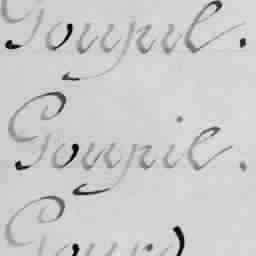 Goupil.
Goupil.